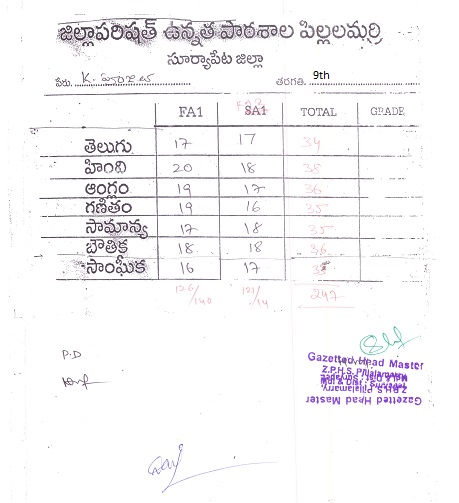 జిల్లాపరిషత్ ఉన్నత పాఠశాల పిల్లలమర్రి
సూర్యాపేట జిల్లా
పేరు. K. తరగతి. 9th
FA1 SA1 TOTAL GRADE
తెలుగు 17 17 34
హింది 20 18 38
ఆంగ్లం 19 17 36
గణితం 19 16 35
సామాన్య 17 18 35
బౌతిక 18 18 36
సాంఘీక 16 17 33
126/140 121/14 247
P.D
Gazetted Head Master
Z.P.H.S. Pillalamarry
Gazetted Head Master
Z.P.H.S. Pillalamarry,